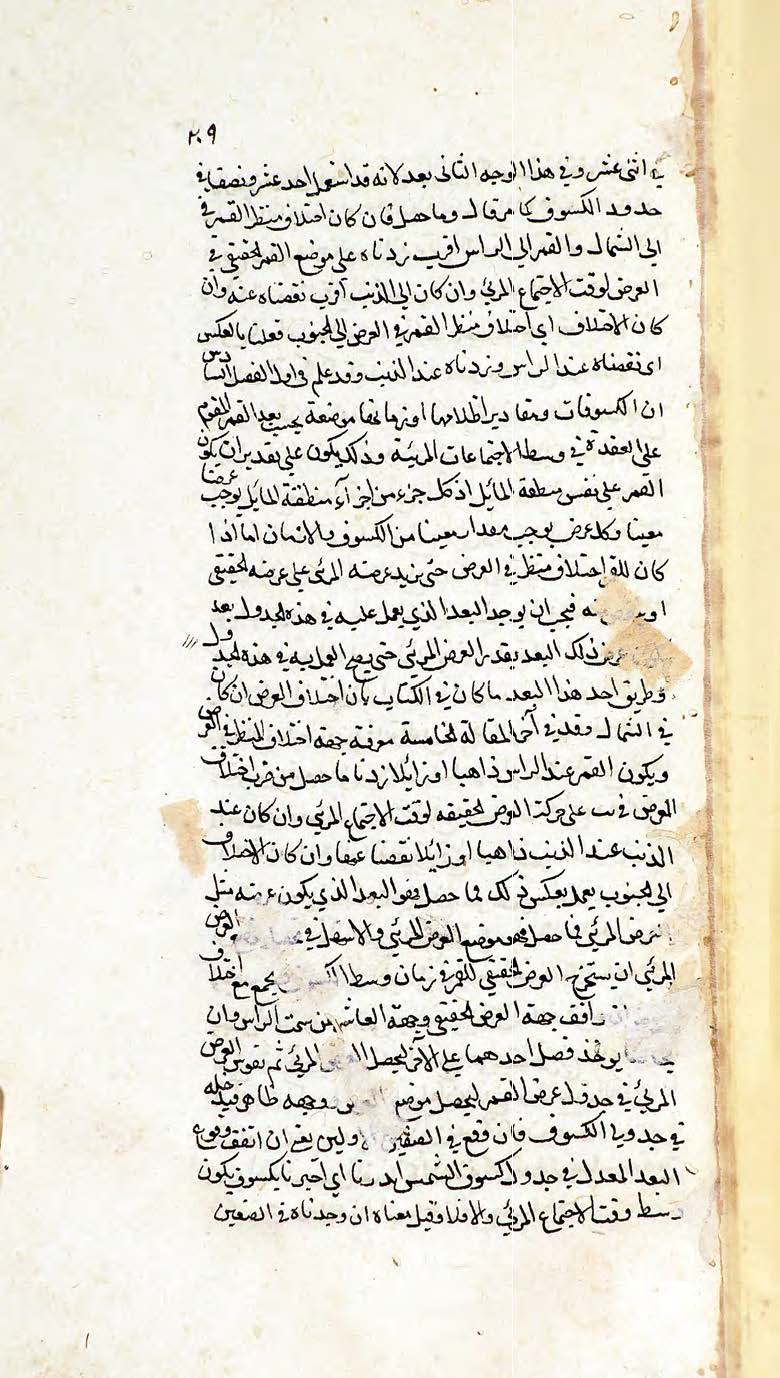 ٢٠٩
في اثني عشر وفي هذا الوجه الثاني بعد لانه قد استعمل احد عشر ونصفا في
حدود الكسوف كما مر قال وما حصل فان كان اختلاف منظر القمر في
الى الشمال والقمر الى الراس اقرب زدناه على موضع القمر الحقيقي في
العرض لوقت الاجتماع المرئي وان كان الى الذنب اقرب نقصناه عنه وان
كان الاختلاف اي اختلاف منظر القمر في العرض الى الجنوب فعلنا بالعكس
اي نقصناه عند الراس وزدناه عند الذنب وقد علم في اول الفصل السادس
ان الكسوفات ومقادير اظلامها وازمانها موضعة بحسب بعد القمر المقوم
على العقدة في وسط الاجتماعات المرئية وذلك يكون على تقدير ان يكون
القمر على نفس منطقة المايل اذ كل جزء من اجزآء منطقة المايل يوجب عرضا
معينا وكل عرض يوجب مقدارا معينا من الكسوف والازمان اما اذا
كان للقمر اختلاف منظر في العرض حتى يزيد عرضه المرئي على عرضه الحقيقي
او فيجب ان يوجد البعد الذي يعمل عليه في هذه الجدول بعد
عرض ذلك البعد بقدر العرض المرئي حتى يصح العمل به في هذه الجدول
وطريق اخذ هذا البعد ما كان في الكتاب بان اختلاف العرض ان كان
في الشمال وقد في آخر المقالة الخامسة معرفة جهة اختلاف المنظر في العرض
ويكون القمر عند الراس ذاهبا او زايلا زدنا ما حصل من ضرب اختلاف
العرض في يب على حركة العرض الحقيقه لوقت الاجتماع المرئي وان كان عند
الذنب عند الذنب ذاهبا او زايلا نقصنا عنها وان كان الاختلاف
الى الجنوب يعمل بعكس ذلك فما حصل فهو البعد الذي يكون عرضه مثل
العرض المرئي فما حصل فهو موضع العرض المرئي والاسهل في العرض
المرئي ان يستخرج العرض الحقيقي للقمر في زمان وسط الكسوف يجمع مع اختلاف
وافق جهة العرض الحقيقي وجهة العاشر من سمت الراس وان
يوخذ فضل احدهما على الآخر ليحصل المرئي ثم نقوس العرض
المرئي في جدول عرض القمر ليحصل موضع وجهه ظاهر فيدخله
في جدولي الكسوف فان وقع في الصفين الاولين يعني ان اتفق وقوع
البعد المعدل في جدول كسوف الشمس انذرنا اي اخبرنا بكسوف يكون
وسط وقت الاجتماع المرئي والا فلا فقيل معناه ان وجدناه في الصفين